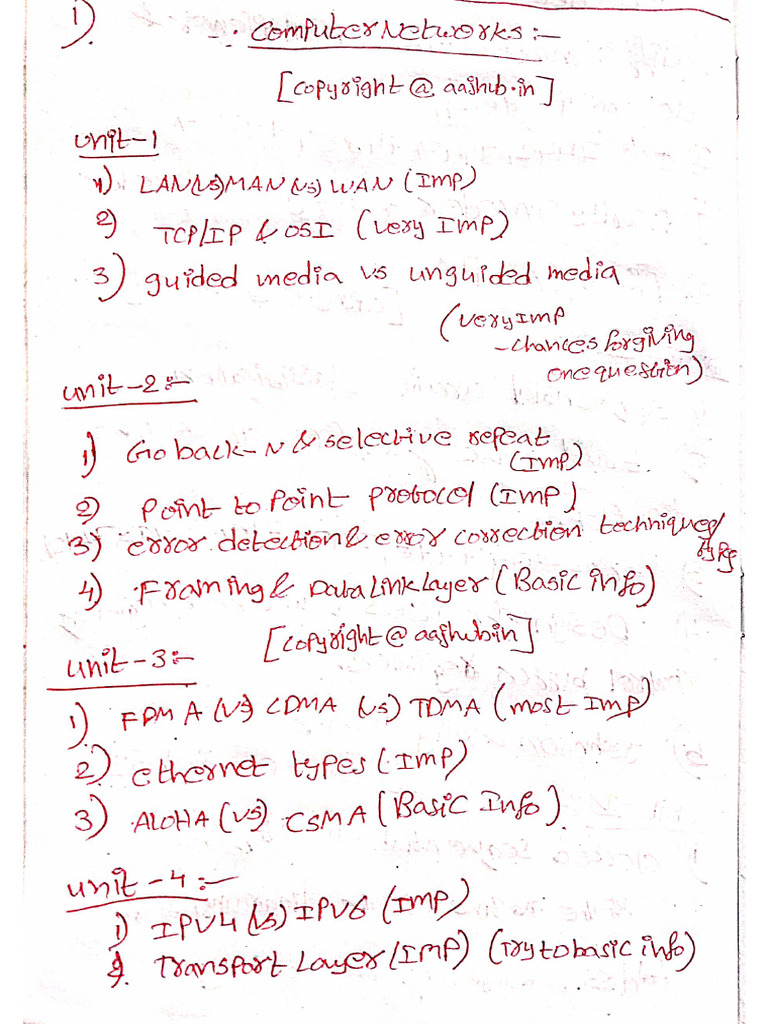 1)
Computer Networks :-
[copyright @ aajhub.in]
unit-1
1) LAN(VS)MAN(VS)WAN (Imp)
2) TCP/IP & OSI (very Imp)
3) guided media vs unguided media
(very Imp
-chances for giving
one question)
unit-2:-
1) Go back-N & selective repeat
(Imp)
2) Point to Point protocol (Imp)
3) error detection & error correction techniques/
types
4) Framing & Data Link Layer (Basic info)
[copyright @ aajhub.in]
unit-3:-
1) FDMA (VS) CDMA (VS) TDMA (most Imp)
2) ethernet types (Imp)
3) ALOHA (VS) CSMA (Basic Info)
unit-4:-
1) IPV4 (VS) IPV6 (Imp)
2. Transport Layer (IMP) (Try to basic info)